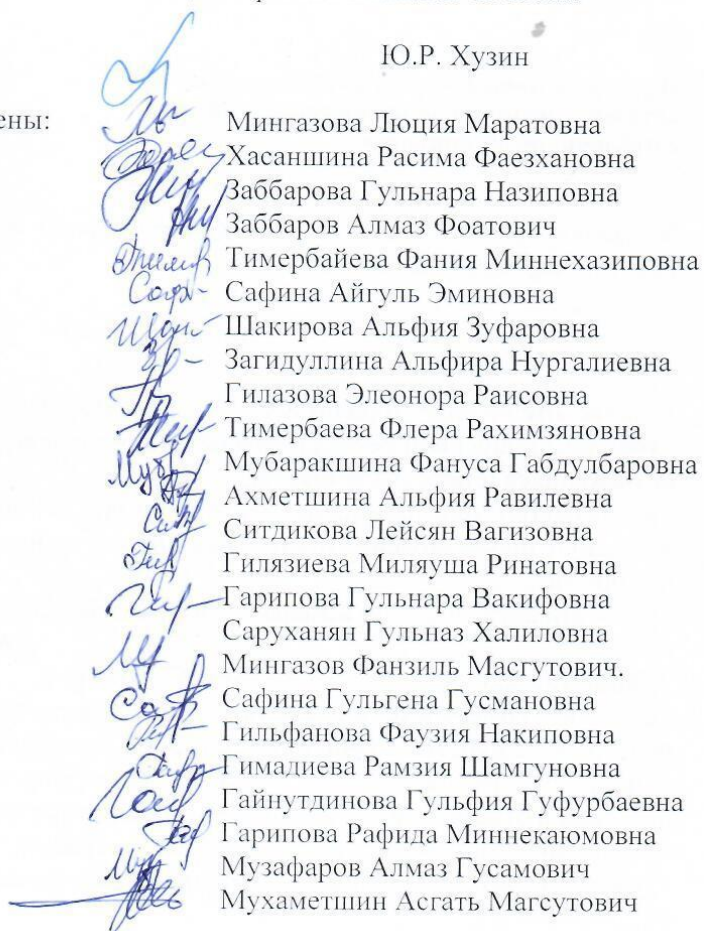 Ю.Р. Хузин
ены:
Мингазова Люция Маратовна
Хасаншина Расима Фаезхановна
Заббарова Гульнара Назиповна
Заббаров Алмаз Фоатович
Тимербайева Фания Миннехазиповна
Сафина Айгуль Эминовна
Шакирова Альфия Зуфаровна
Загидуллина Альфира Нургалиевна
Гилазова Элеонора Раисовна
Тимербаева Флера Рахимзяновна
Мубаракшина Фануса Габдулбаровна
Ахметшина Альфия Равилевна
Ситдикова Лейсян Вагизовна
Гилязиева Миляуша Ринатовна
Гарипова Гульнара Вакифовна
Саруханян Гульназ Халиловна
Мингазов Фанзиль Масгутович.
Сафина Гульгена Гусмановна
Гильфанова Фаузия Накиповна
Гимадиева Рамзия Шамгуновна
Гайнутдинова Гульфия Гуфурбаевна
Гарипова Рафида Миннекаюмовна
Музафаров Алмаз Гусамович
Мухаметшин Асгать Магсутович